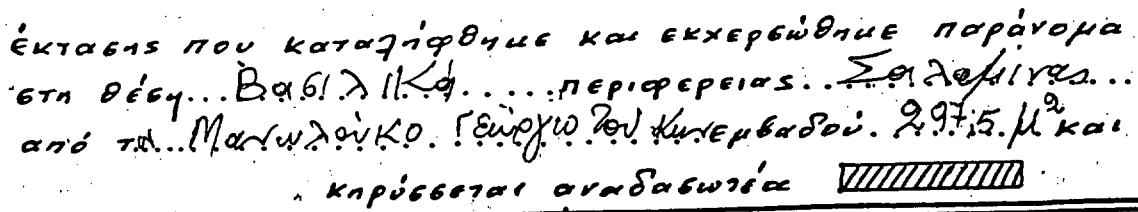 έκτασης που καταλήφθηκε και εκχερσώθηκε παράνομα
στη θέση... Βασιλικά ..... περιφερειας... Σαλαμίνας...
από τον... Μανωλούκο Γεώργιο του Κων εμβαδού. 297,5 μ² και
κηρύσσεται αναδασωτέα